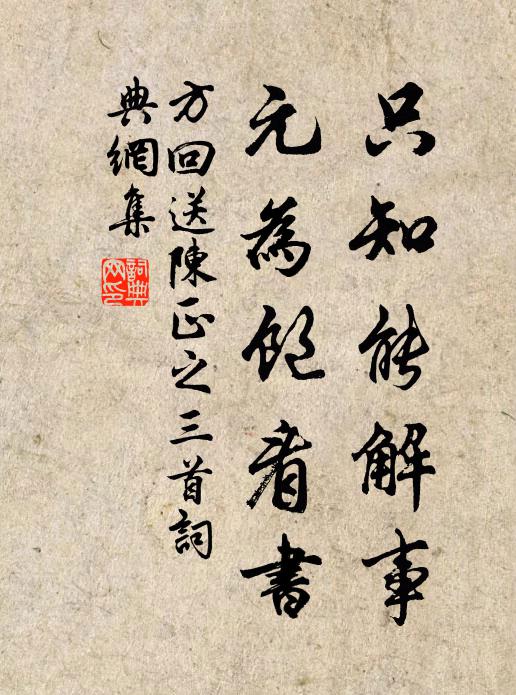 只知能解事
元為飽看書
方回送陳正之三首詞
典網集
詞典
网印